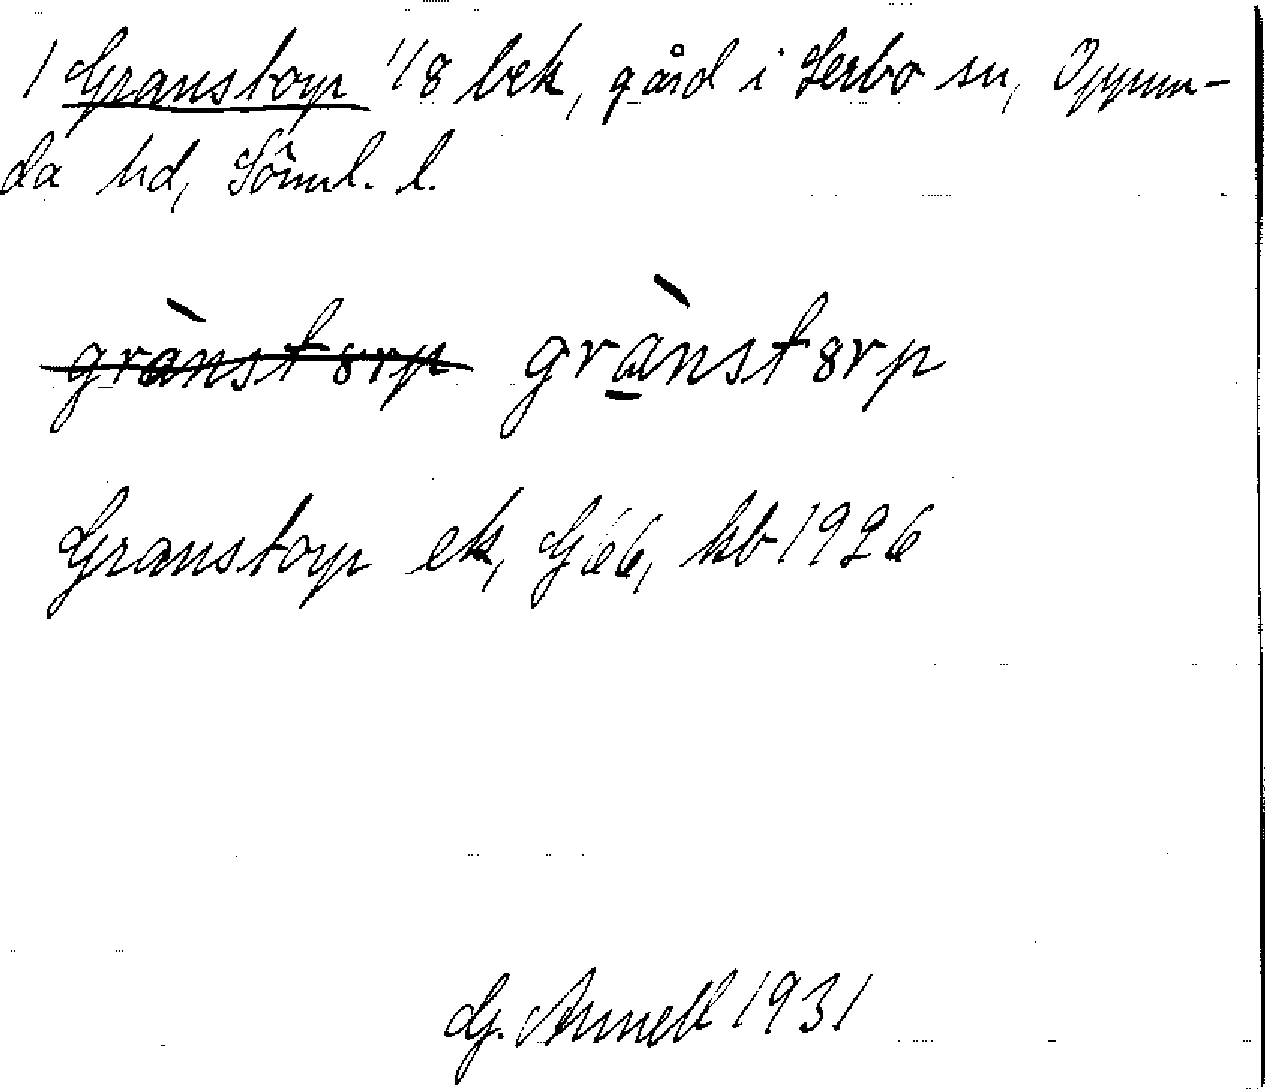 1 Granstorp 1/8 bek, gård i Lerbo sn, Oppun-
da hd, Söml. l.
grànst8rp grànst8rp
Granstorp ek, G66, kb 1926
G. Arnell 1931